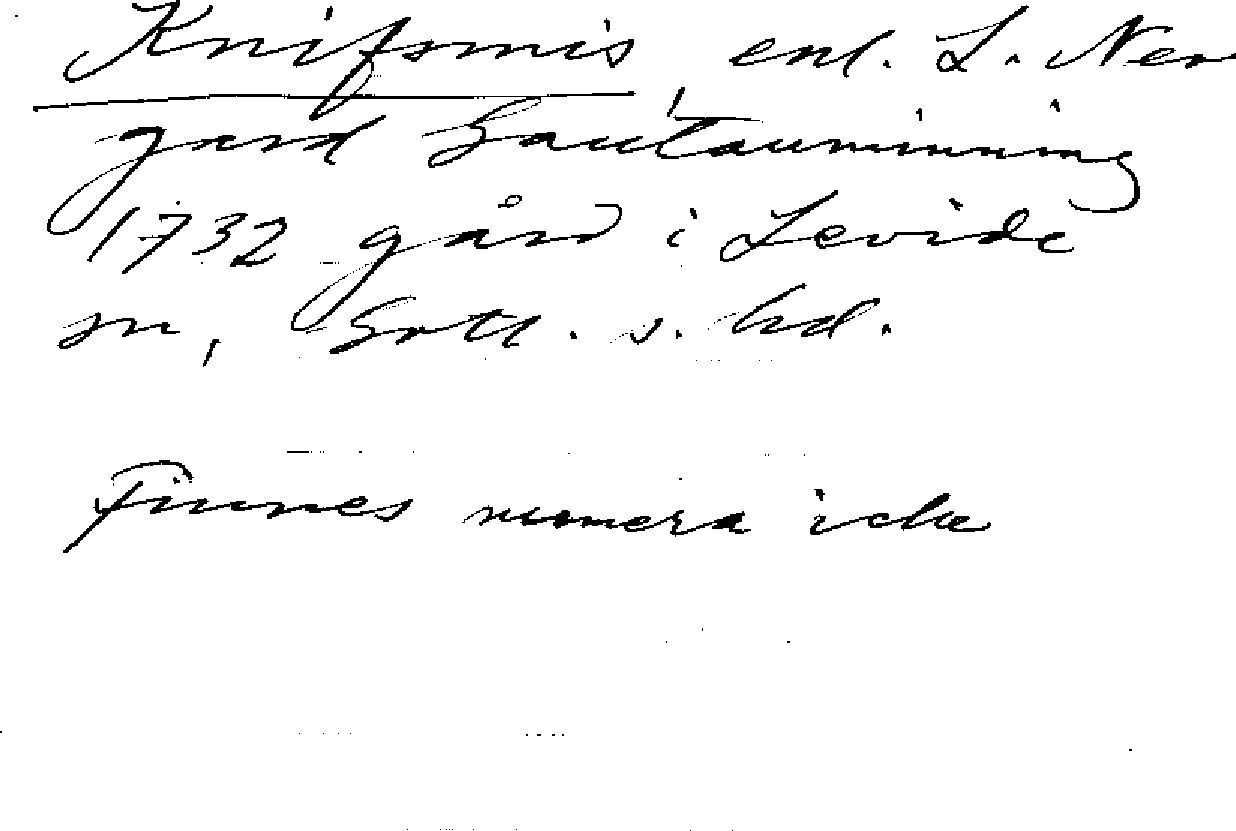 Knifsmis, enl. L. Ner
gard Gautauminning
1732 gård i Levide
sn, Gotl. s. hd.
Finnes numera icke